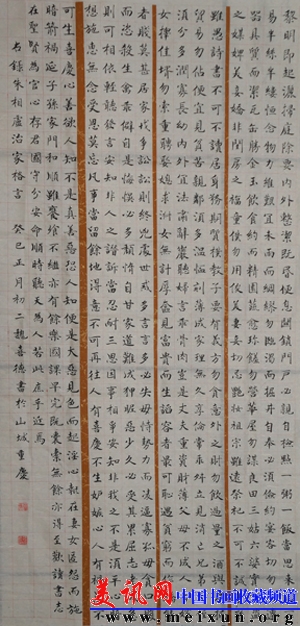 黎明即起灑掃庭除要內外整潔既昏便息關鎖門戶必親自檢點一粥一飯當思來處不
易半絲半縷恒念物力維艱宜未雨而綢繆勿臨渴而掘井自奉必須儉約宴客切勿留連
器具質而潔瓦缶勝金玉飲食約而精園蔬愈珍饈勿營華屋勿謀良田三姑六婆實淫盜
之媒婢美妾嬌非閨房之福童僕勿用俊美妻妾切忌艷妝祖宗雖遠祭祀不可不誠子孫
雖愚詩書不可不讀居身務期質樸教子要有義方勿貪意外之財勿飲過量之酒與肩挑
貿易勿佔便宜見貧苦親鄰須多溫恤刻薄成家理無久享倫常乖舛立見消亡兄弟叔侄
須分多潤寡長幼內外宜法肅辭嚴聽婦言乖骨肉豈是丈夫重資財薄父母不成人子嫁
女擇佳婿勿索重聘娶媳求淑女無計厚奩見富貴而生諂容者最可恥遇貧窮而作驕態
者賤莫甚居家戒爭訟訟則終凶處世戒多言言多必失毋恃勢力而凌逼孤寡毋貪口腹
而恣殺生禽乖僻自是悔誤必多頹惰自甘家道難成狎昵惡少久必受其累屈志老成急
則可相依輕聽發言安知非人之譖訴當忍耐三思因事相爭安知非我之不是須平心暗
想施惠無念受恩莫忘凡事當留餘地得意不可再往人有喜慶不生妒嫉心人有禍患不
可生喜慶心善欲人知不是真善惡恐人知便是大惡見色而起淫心報在妻女匿怨而施
暗箭禍延子孫家門和順雖饔飧不繼亦有餘樂國課早完既囊橐無餘亦得至歡讀書志
在聖賢為官心存君國守分安命順時聽天為人若此庶乎近焉
右錄朱柏廬治家格言 癸巳正月初二魏喜德書於山城重慶
美讯网 中国书画收藏频道
www.mei-xun.com